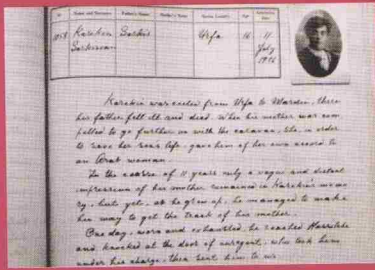 No Name and Surname Father's Name Mother's Name Native Country Age Admission Date
1058 Karekin Sarkis Urfa 16 11
Sarkissian July
Karekin was exiled from Urfa to Mardin, there
his father fell ill and died. When his mother was com-
pelled to go further on with the caravan, she, in order
to save her son's life, gave him of her own accord to
an Arab woman.
In the course of 11 years only a vague and distant
impression of his mother remained in Karekin's memo-
ry, but yet, as he grew up, he managed to make
his way to get the track of his mother.
One day, worn and exhausted, he reached
and knocked at the door of our agent, who took him
under his charge, then sent him to us.